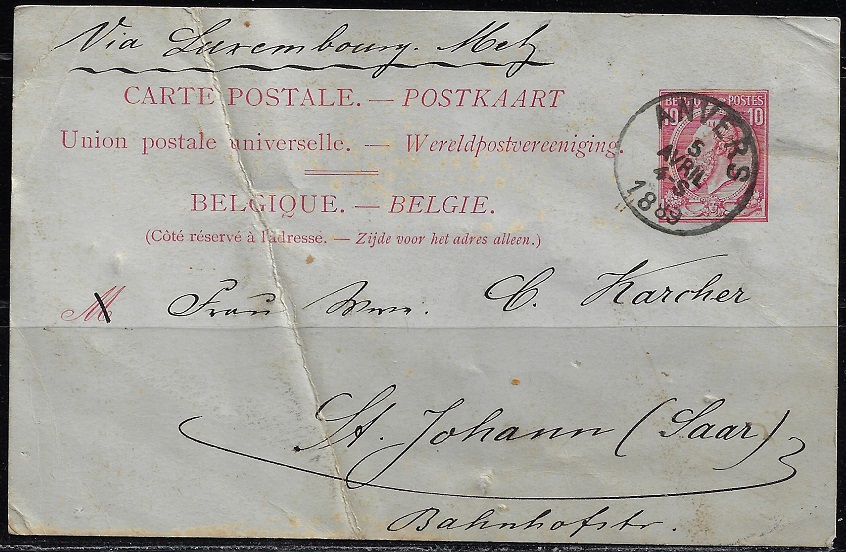 Via Luxembourg. Metz
CARTE POSTALE. — POSTKAART
Union postale universelle. — Wereldpostvereeniging.
BELGIQUE. — BELGIE.
(Côté réservé à l'adresse. — Zijde voor het adres alleen.)
POSTES
10
ANVERS
5
AVRIL
4-S
188
M
Frau Wwe. C. Karcher
St. Johann (Saar)
Bahnhofstr.